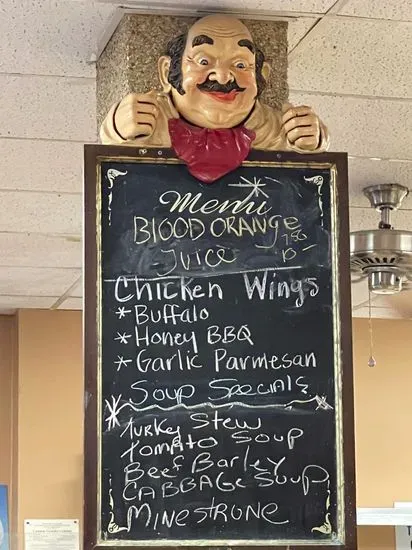 Menu
BLOOD ORANGE
Juice
Chicken Wings
* Buffalo
* Honey BBQ
* Garlic Parmesan
Soup Specials
Turkey Stew
Tomato Soup
Beef Barley
CABBAGE Soup
MINESTRONE